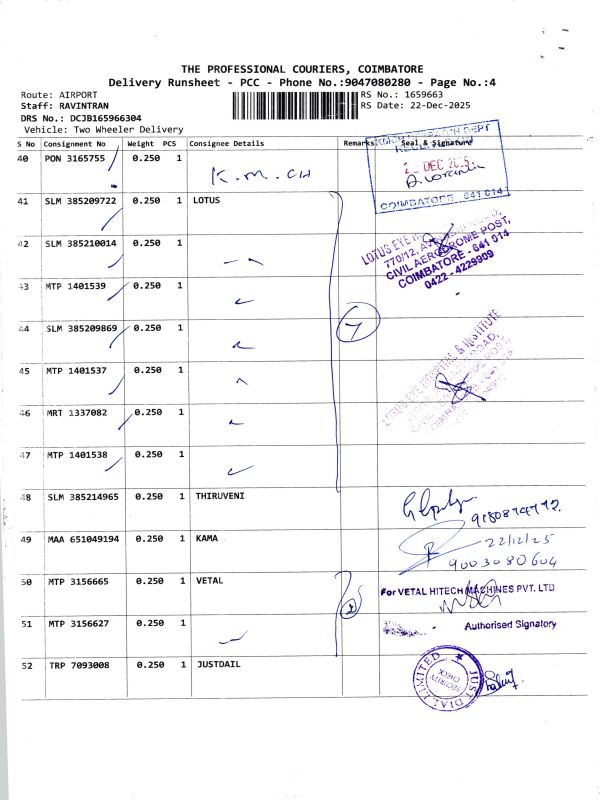 THE PROFESSIONAL COURIERS, COIMBATORE
Delivery Runsheet - PCC - Phone No.:9047080280 - Page No.:4
Route: AIRPORT
RS No.: 1659663
Staff: RAVINTRAN
RS Date: 22-Dec-2025
DRS No.: DCJB165966304
Vehicle: Two Wheeler Delivery
S No Consignment No Weight PCS Consignee Details Remarks Seal & Signature
40 PON 3165755 0.250 1 K.M.CH
DEC 2025
COIMBATORE - 641 014
41 SLM 385209722 0.250 1 LOTUS
LOTUS EYE
770/12,
CIVIL AERODROME POST,
COIMBATORE - 641 014
0422 - 4229909
42 SLM 385210014 0.250 1
43 MTP 1401539 0.250 1
44 SLM 385209869 0.250 1
7
LOTUS EYE HOSPITAL & INSTITUTE
ROAD,
POST,
45 MTP 1401537 0.250 1
46 MRT 1337082 0.250 1
47 MTP 1401538 0.250 1
48 SLM 385214965 0.250 1 THIRUVENI
49 MAA 651049194 0.250 1 KAMA
22/12/25
9003080604
50 MTP 3156665 0.250 1 VETAL
2
For VETAL HITECH MACHINES PVT. LTD
51 MTP 3156627 0.250 1
Authorised Signatory
52 TRP 7093008 0.250 1 JUSTDAIL
JUST DIAL LIMITED
SECURITY
CHECK